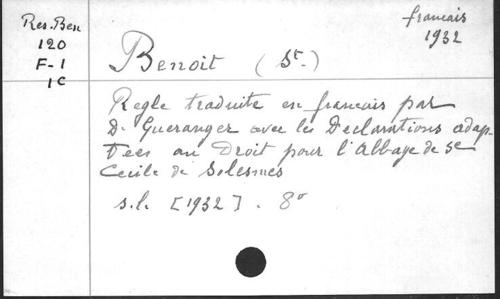 Res. Ben
120
F-1
1c
francais
1932
Benoit (St.)
Regle traduite en francais par
D. Gueranger avec les Declarations adap-
tees au Droit pour l'Abbaye de Se
Cecile de Solesmes
s.l. [1932]. 8°